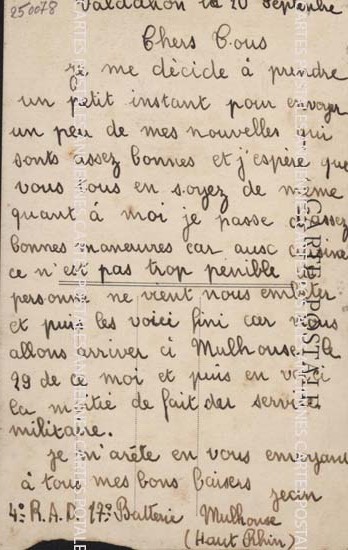 250078
Valdahon le 20 Septembre
Chers Tous
Je me décide à prendre
un petit instant pour envoyer
un peu de mes nouvelles qui
sonts assez bonnes et j'espère que
vous tous en soyez de même
quant à moi je passe d'assez
bonnes maneuvres car ausc cuisines
ce n'est pas trop pénible
personne ne vient nous embêter
et puis les voici fini car nous
allons arriver ci Mulhouse le
29 de ce moi et puis en voici
la moitié de fait du service
militaire.
je m'arête en vous envoyant
à tous mes bons baisers
4e R.A.D. 17e Batterie Mulhouse
(Haut Rhin)
CARTE POSTALE